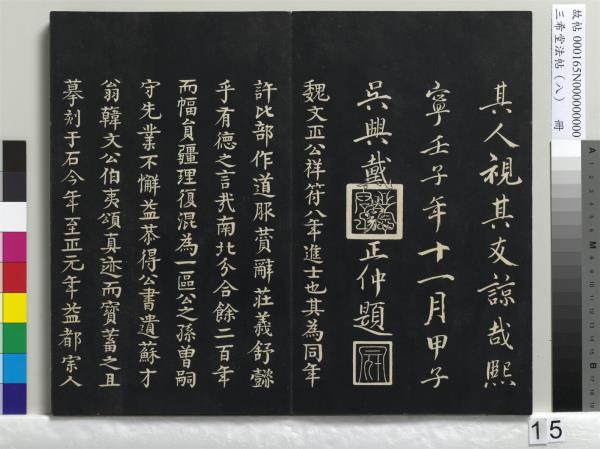 其人視其友諒哉熙
寧壬子年十一月甲子
吳興戴
正仲題
魏文正公祥符八年進士也其為同年
許比部作道服贊辭莊義舒豑
乎有德之言我南北分合餘二百年
而幅貟疆理復混為一區公之孫曽嗣
守先業不懈益恭得公書遺蘇才
翁韓文公伯夷頌真迹而寳蓄之且
摹刻于石今年至正元年益都宗人
故帖 000165N000000000
三希堂法帖（八） 冊
15